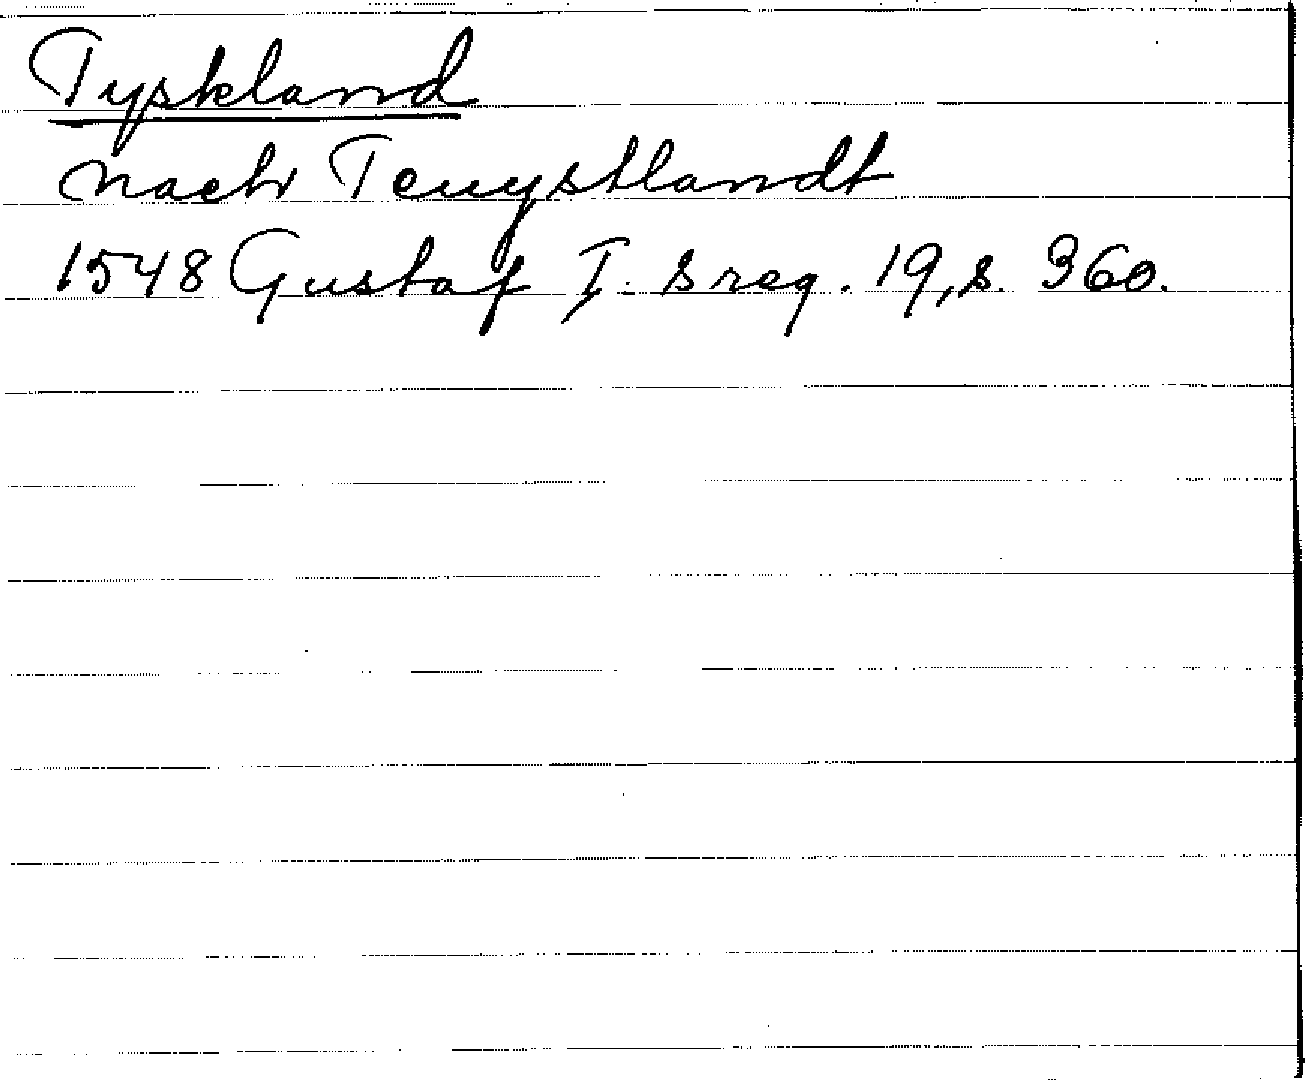 Tyskland
nach Teuystlandt
1548 Gustaf I. s reg. 19, s. 360.